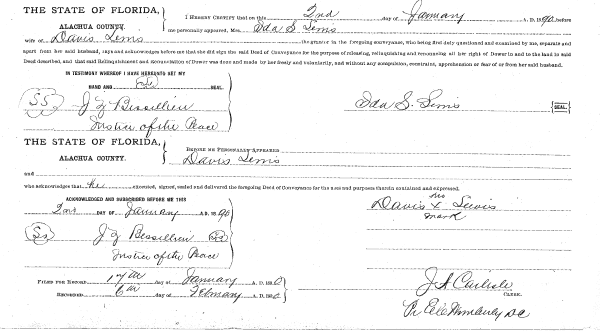 THE STATE OF FLORIDA,
ALACHUA COUNTY.
I HEREBY CERTIFY that on this 2nd day of January A. D. 1890 before
me personally appeared, Mrs. Ida S. Lewis
wife of Davis Lewis the grantor in the foregoing conveyance, who being duly questioned and examined by me, separate and
apart from her said husband, says and acknowledges before me that she did sign the said Deed of Conveyance for the purpose of releasing, relinquishing and renouncing all her right of Dower in and to the land in said
Deed described, and that said Relinquishment and Renunciation of Dower was done and made by her freely and voluntarily, and without any compulsion, constraint, apprehension or fear of or from her said husband.
IN TESTIMONY WHEREOF I HAVE HEREUNTO SET MY
HAND AND SEAL.
SS J G Bessellieu Ida S. Lewis SEAL.
Justice of the Peace
THE STATE OF FLORIDA,
ALACHUA COUNTY.
BEFORE ME PERSONALLY APPEARED
Davis Lewis
and
who acknowledges that he executed, signed, sealed and delivered the foregoing Deed of Conveyance for the uses and purposes therein contained and expressed.
ACKNOWLEDGED AND SUBSCRIBED BEFORE ME THIS
2nd DAY OF January A. D. 1890
his
Davis X Lewis
mark
Ss J G Bessellieu
Justice of the Peace
FILED FOR RECORD 17th day of January A. D. 1890
RECORDED 6th day of February A. D. 1890
J A Carlisle
CLERK.
DC